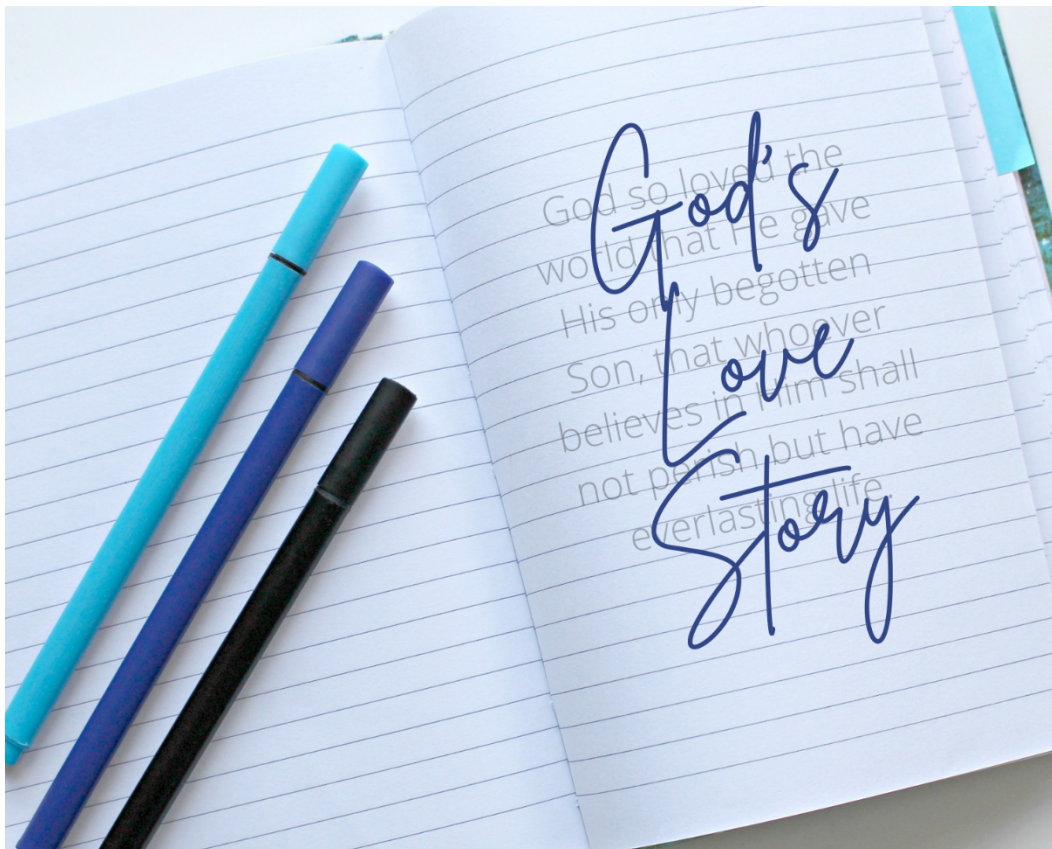 God's
Love
Story
God so loved the
world that He gave
His only begotten
Son, that whoever
believes in Him shall
not perish but have
everlasting life.